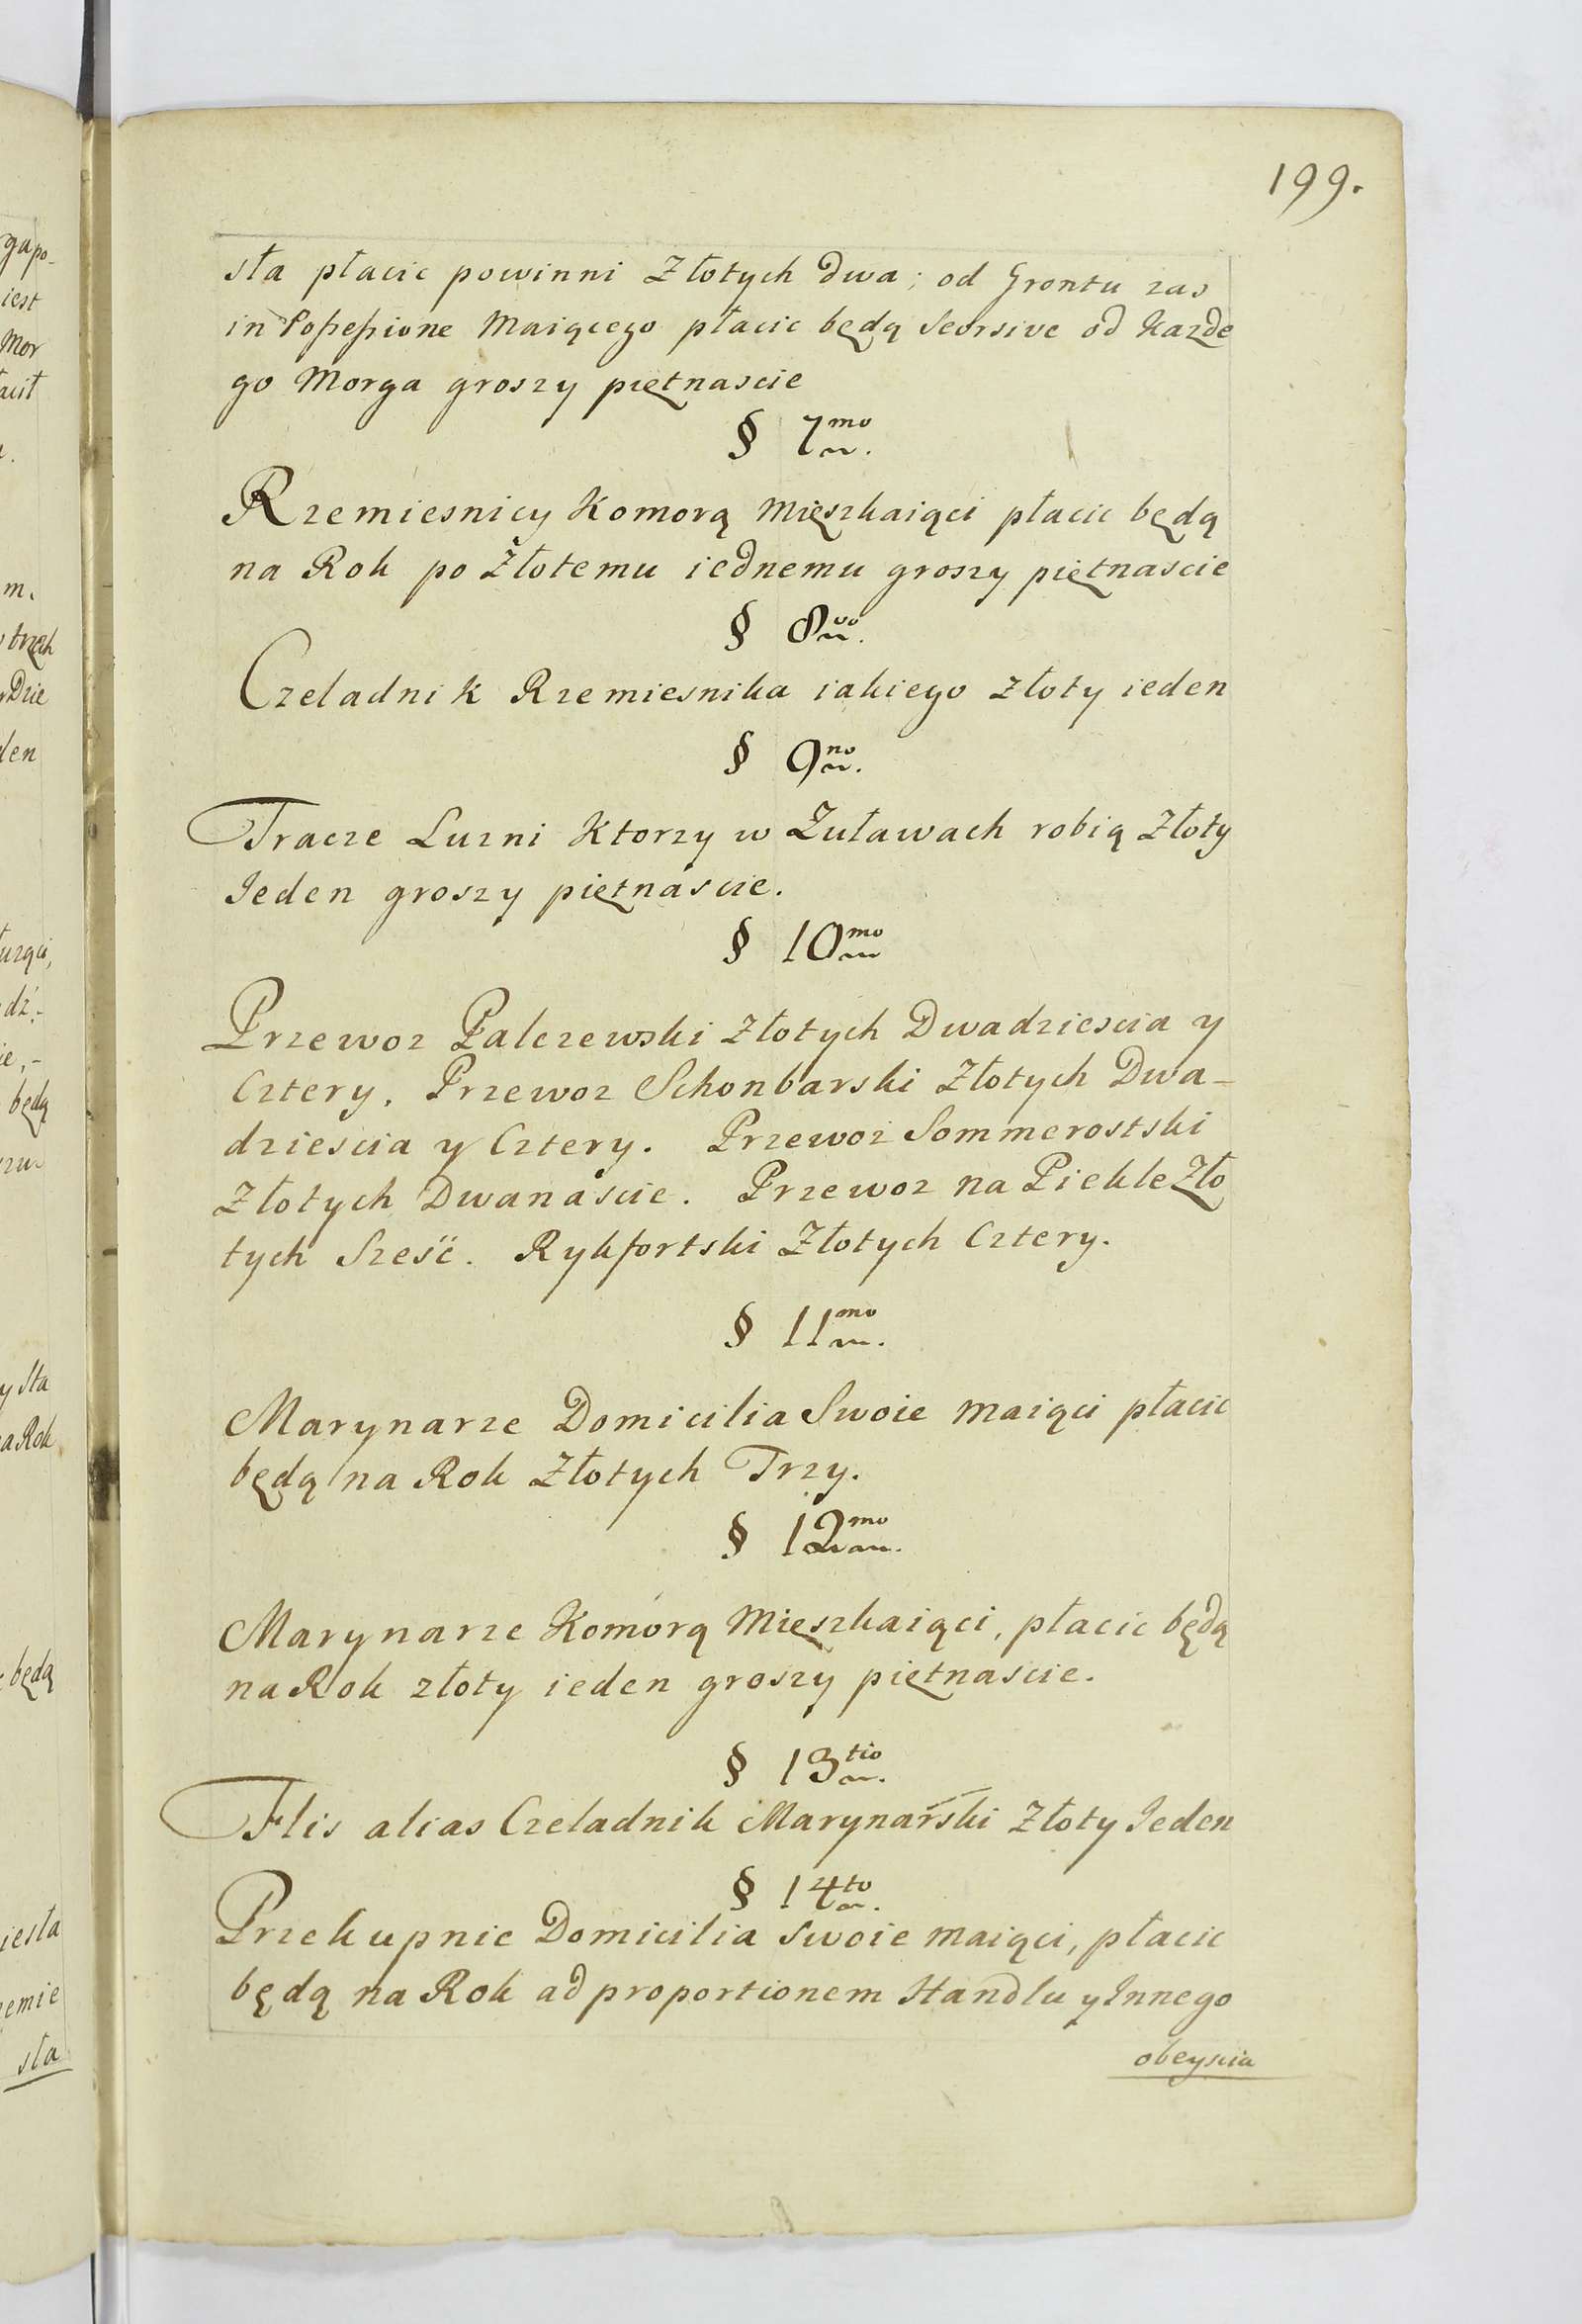 199.
sta płacic powinni Złotych dwa; od Grontu zas
in Possessione Maiącego płacic będą Seorsive od Kazde
go Morga groszy piętnascie
§ 7mo.
Rzemiesnicy Komorą Mięszkaiąci płacic będą
na Rok po Złotemu iednemu groszy piętnascie
§ 8vo.
Czeladnik Rzemiesnika iakiego złoty ieden
§ 9no.
Tracze Luzni Ktorzy w Żuławach robią Złoty
Jeden groszy piętnáscie.
§ 10mo
Przewoz Palczewski Złotych Dwadziescia y
Cztery. Przewoz Schonbarski Złotych Dwa-
dziescia y Cztery. Przewoz Sommerostski
Złotych Dwanáscie. Przewoz na Piekle Zło
tych Sześć. Rykfortski Złotych Cztery.
§ 11mo.
Marynarze Domicilia Swoie maiąci płacic
będą na Rok Złotych Trzy.
§ 12mo.
Marynarze Komorą Mięszkaiąci, płacic będą
na Rok złoty ieden groszy piętnascie.
§ 13tio.
Flis alias Czeladnik Marynarski Złoty Jeden
§ 14to.
Przekupnie Domicilia swoie maiąci, płacic
będą na Rok ad proportionem Handlu y Innego
obeyscia
gapo-
iest
Mor
acit
m.
trzech
Dzie
den
dź.-
ie,-
będą
y sta
na Rok
będą
iesta
emie
sta